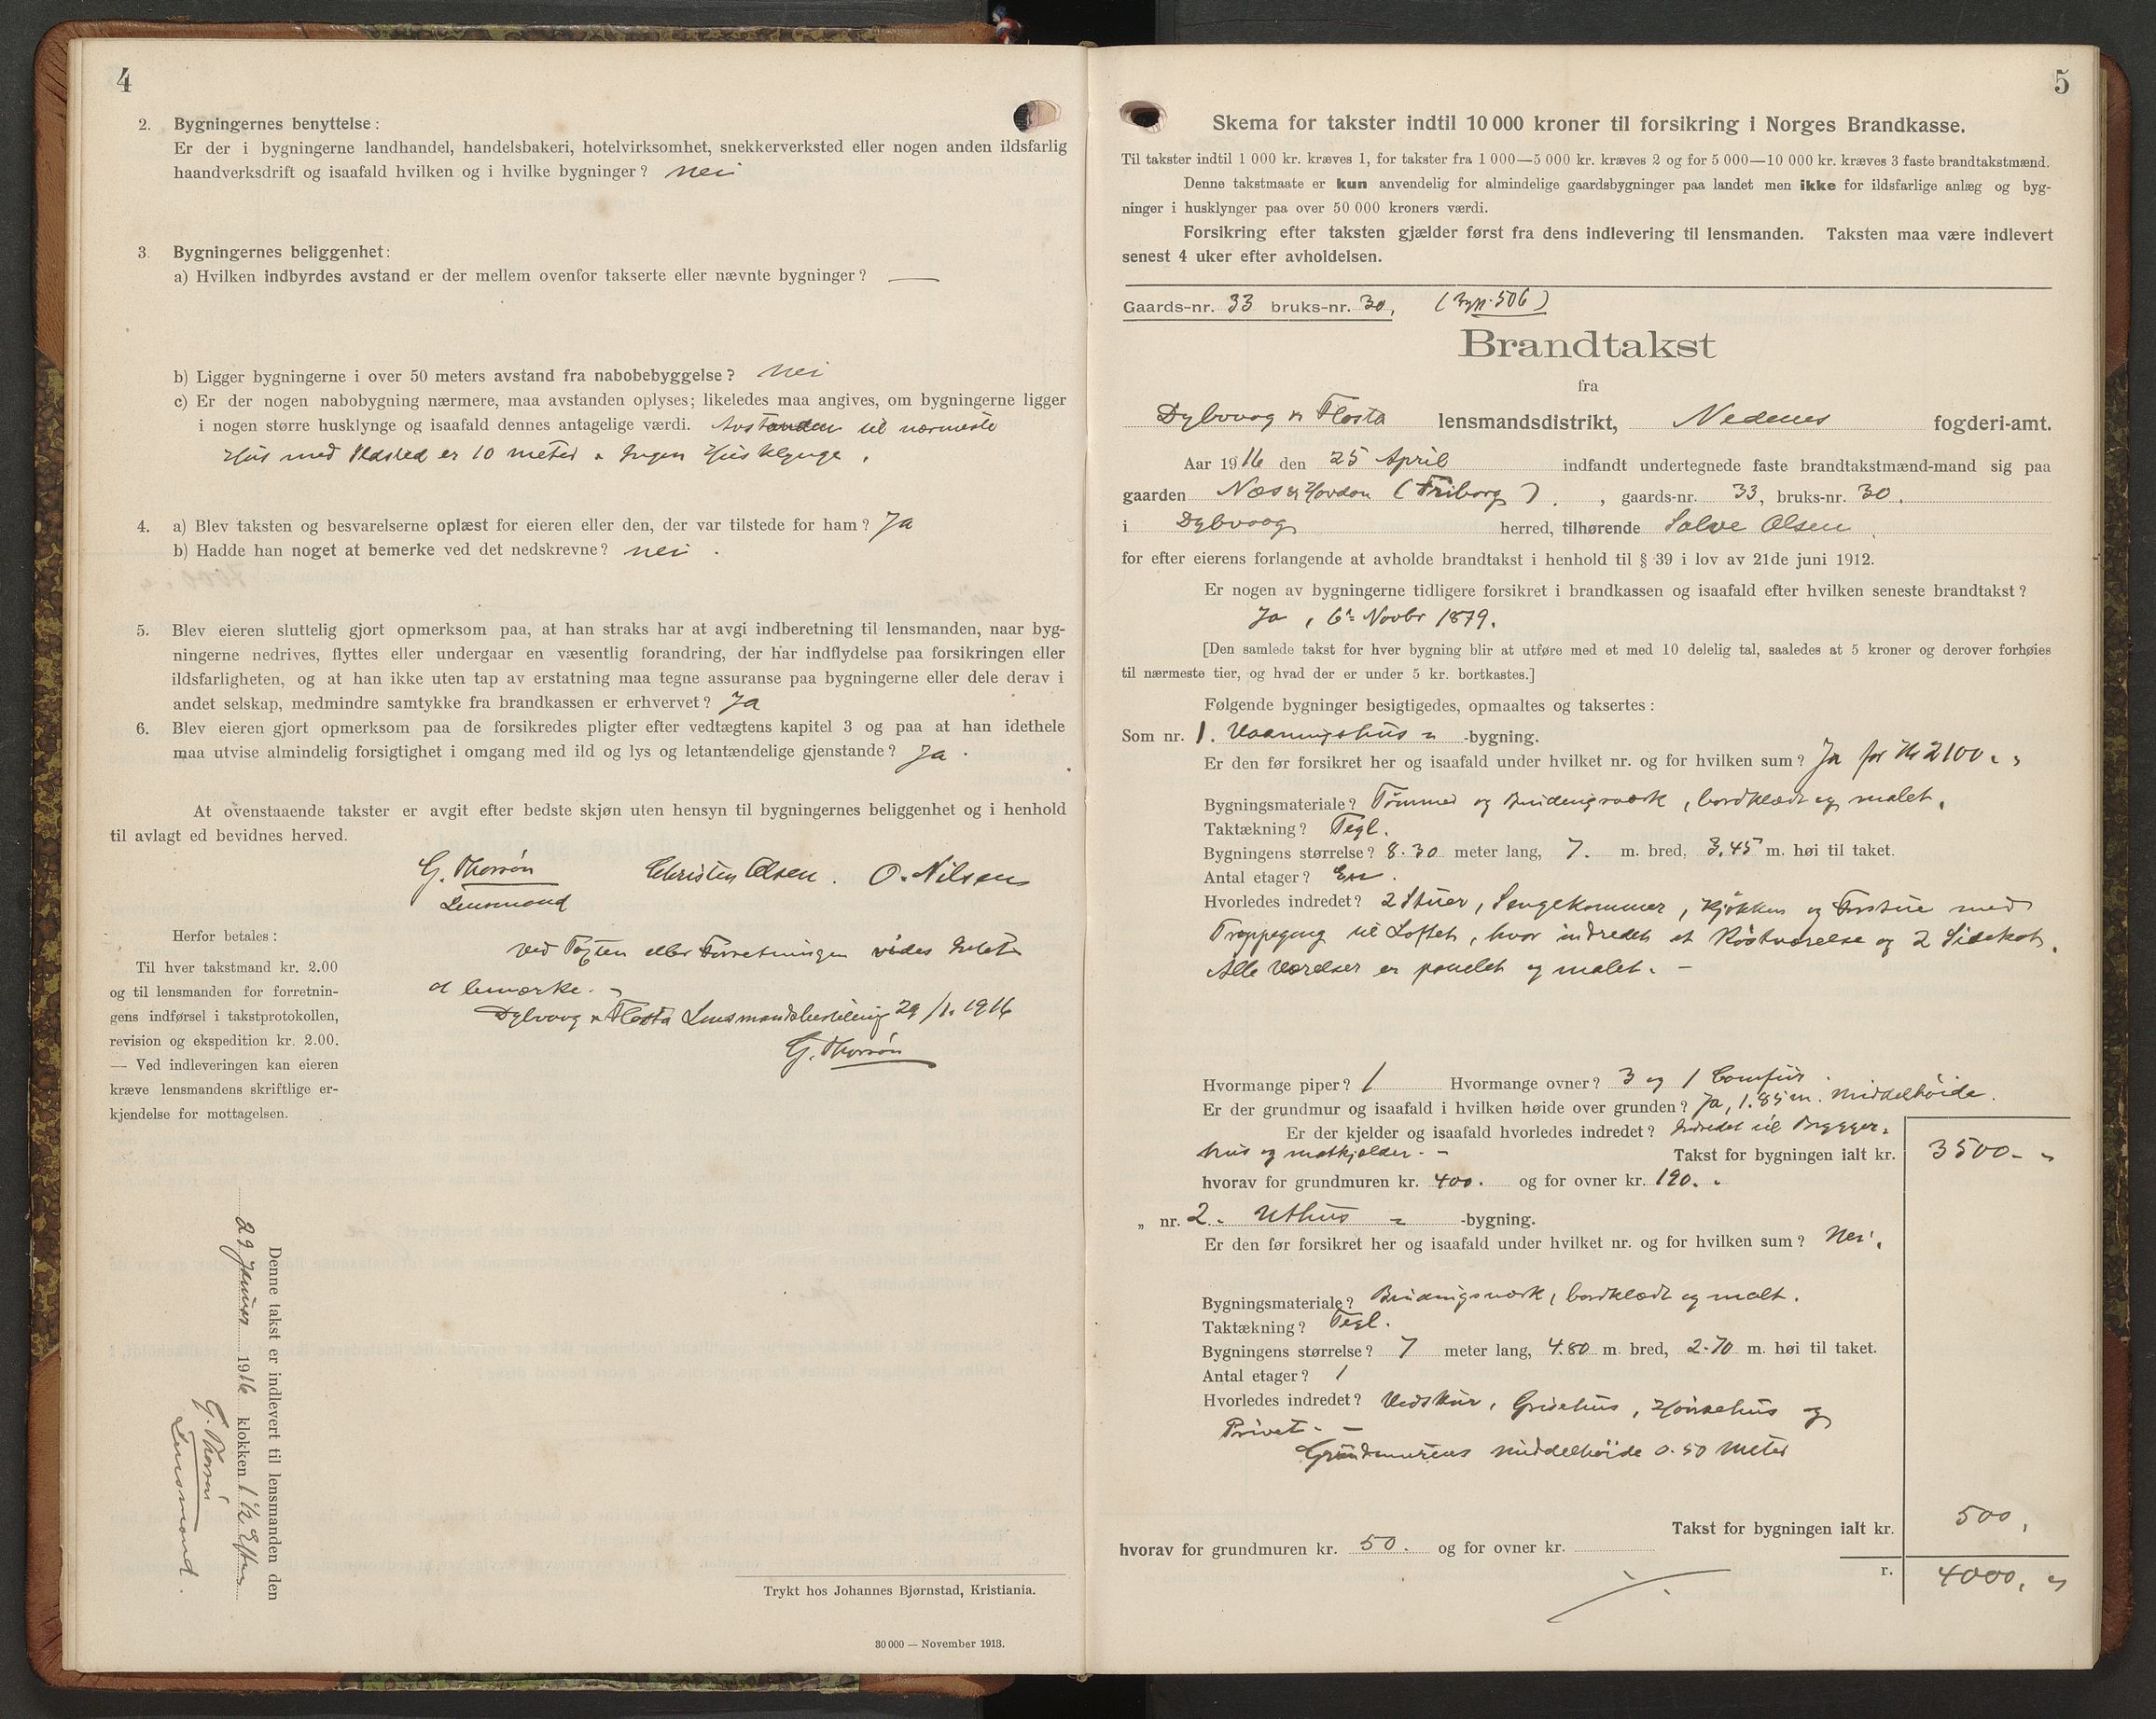 4
2. Bygningernes benyttelse:
Er der i bygningerne landhandel, handelsbakeri, hotelvirksomhet, snekkerverksted eller nogen anden ildsfarlig
haandverksdrift og isaafald hvilken og i hvilke bygninger? nei
3. Bygningernes beliggenhet:
a) Hvilken indbyrdes avstand er der mellem ovenfor takserte eller nævnte bygninger? —
b) Ligger bygningerne i over 50 meters avstand fra nabobebyggelse? nei
c) Er der nogen nabobygning nærmere, maa avstanden oplyses; likeledes maa angives, om bygningerne ligger
i nogen større husklynge og isaafald dennes antagelige værdi. Avstanden til nærmeste
Hus med Ildsted er 10 meter. Ingen Husklynge.
4. a) Blev taksten og besvarelserne oplæst for eieren eller den, der var tilstede for ham? Ja
b) Hadde han noget at bemerke ved det nedskrevne? nei.
5. Blev eieren sluttelig gjort opmerksom paa, at han straks har at avgi indberetning til lensmanden, naar byg-
ningerne nedrives, flyttes eller undergaar en væsentlig forandring, der har indflydelse paa forsikringen eller
ildsfarligheten, og at han ikke uten tap av erstatning maa tegne assuranse paa bygningerne eller dele derav i
andet selskap, medmindre samtykke fra brandkassen er erhvervet? Ja
6. Blev eieren gjort opmerksom paa de forsikredes pligter efter vedtægtens kapitel 3 og paa at han idethele
maa utvise almindelig forsigtighet i omgang med ild og lys og letantændelige gjenstande? Ja.
At ovenstaaende takster er avgit efter bedste skjøn uten hensyn til bygningernes beliggenhet og i henhold
til avlagt ed bevidnes herved.
G. Thorsøn Christen Olsen. O. Nilsen
Lensmand
Ved Taxten eller Forretningen vides Intet
at bemærke.
Dybvaag & Flosta Lensmandsbestilling 29/1. 1916
G. Thorsøn
Herfor betales:
Til hver takstmand kr. 2.00
og til lensmanden for forretnin-
gens indførsel i takstprotokollen,
revision og ekspedition kr. 2.00.
— Ved indleveringen kan eieren
kræve lensmandens skriftlige er-
kjendelse for mottagelsen.
Denne takst er indlevert til lensmanden den
29 Januar 1916 klokken 1 1/2 Efterm
G. Thorsøn
Lensmand.
Trykt hos Johannes Bjørnstad, Kristiania.
30 000 — November 1913.
5
Skema for takster indtil 10 000 kroner til forsikring i Norges Brandkasse.
Til takster indtil 1 000 kr. kræves 1, for takster fra 1 000—5 000 kr. kræves 2 og for 5 000—10 000 kr. kræves 3 faste brandtakstmænd.
Denne takstmaate er kun anvendelig for almindelige gaardsbygninger paa landet men ikke for ildsfarlige anlæg og byg-
ninger i husklynger paa over 50 000 kroners værdi.
Forsikring efter taksten gjælder først fra dens indlevering til lensmanden. Taksten maa være indlevert
senest 4 uker efter avholdelsen.
Gaards-nr. 33 bruks-nr. 30, 506)
Brandtakst
fra
Dybvaag & Flosta lensmandsdistrikt, Nedenes fogderi-amt.
Aar 1916 den 25 April indfandt undertegnede faste brandtakstmænd-mand sig paa
gaarden Næs (Friborg), gaards-nr. 33, bruks-nr. 30.
i Dybvaag herred, tilhørende Salve Olsen
for efter eierens forlangende at avholde brandtakst i henhold til § 39 i lov av 21de juni 1912.
Er nogen av bygningerne tidligere forsikret i brandkassen og isaafald efter hvilken seneste brandtakst?
Ja, 6te Novbr 1879.
[Den samlede takst for hver bygning blir at utføre med et med 10 delelig tal, saaledes at 5 kroner og derover forhøies
til nærmeste tier, og hvad der er under 5 kr. bortkastes.]
Følgende bygninger besigtigedes, opmaaltes og taksertes:
Som nr. 1. Vaaningshus -bygning.
Er den før forsikret her og isaafald under hvilket nr. og for hvilken sum? Ja for Kr 2100.
Bygningsmateriale? Tømmer og Bindingsværk, bordklædt og malet.
Taktækning? Tegl.
Bygningens størrelse? 8.30 meter lang, 7. m. bred, 3.45 m. høi til taket.
Antal etager? En.
Hvorledes indredet? 2 Stuer, Sengekammer, Kjøkken og Forstue med
Trappegang til Loftet, hvor indredet et Kvistværelse og 2 Sidekot.
Alle Værelser er panelet og malet. —
Hvormange piper? 1 Hvormange ovner? 3 og 1 Comfur
Er der grundmur og isaafald i hvilken høide over grunden? Ja, 1.85 m. middelhøide.
Er der kjelder og isaafald hvorledes indredet? Indredet til Brygger-
hus og matkjelder. — Takst for bygningen ialt kr. 3500. -
hvorav for grundmuren kr. 400. og for ovner kr. 190.
„ nr. 2. Uthus -bygning.
Er den før forsikret her og isaafald under hvilket nr. og for hvilken sum? Nei.
Bygningsmateriale? Bindingsværk, bordklædt og malt.
Taktækning? Tegl.
Bygningens størrelse? 7 meter lang, 4.80 m. bred, 2.70 m. høi til taket.
Antal etager? 1
Hvorledes indredet? Vedskur, Grisehus, Hønsehus og
Privet. —
Grundmurens middelhøide 0.50 meter
Takst for bygningen ialt kr. 500,
hvorav for grundmuren kr. 50. og for ovner kr.
r. 4000,